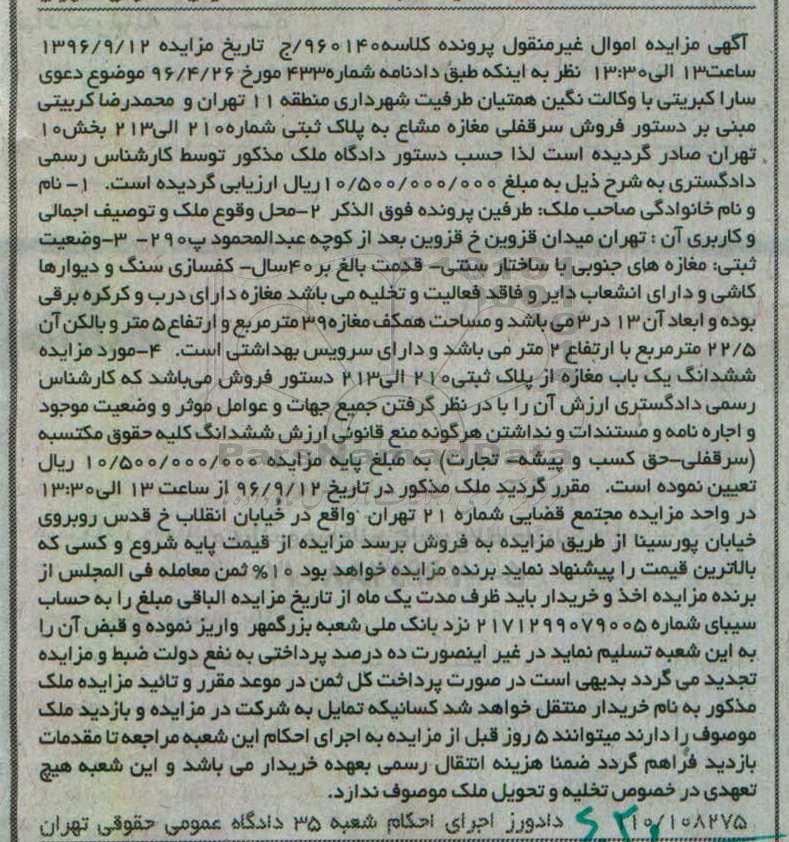 آگهی مزایده اموال غیرمنقول پرونده کلاسه۹۶۰۱۴۰/ج تاریخ مزایده ۱۳۹۶/۹/۱۲
ساعت۱۳ الی۱۳:۳۰ نظر به اینکه طبق دادنامه شماره۴۳۳ مورخ ۹۶/۴/۲۶ موضوع دعوی
سارا کبریتی با وکالت نگین همتیان طرفیت شهرداری منطقه ۱۱ تهران و محمدرضا کربیتی
مبنی بر دستور فروش سرقفلی مغازه مشاع به پلاک ثبتی شماره۲۱۰ الی۲۱۳ بخش۱۰
تهران صادر گردیده است لذا حسب دستور دادگاه ملک مذکور توسط کارشناس رسمی
دادگستری به شرح ذیل به مبلغ ۱۰/۵۰۰/۰۰۰/۰۰۰ریال ارزیابی گردیده است. ۱- نام
و نام خانوادگی صاحب ملک: طرفین پرونده فوق الذکر ۲-محل وقوع ملک و توصیف اجمالی
و کاربری آن : تهران میدان قزوین خ قزوین بعد از کوچه عبدالمحمود پ۲۹۰- ۳-وضعیت
ثبتی: مغازه های جنوبی با ساختار سنتی- قدمت بالغ بر۴۰سال- کفسازی سنگ و دیوارها
کاشی و دارای انشعاب دایر و فاقد فعالیت و تخلیه می باشد مغازه دارای درب و کرکره برقی
بوده و ابعاد آن ۱۳ در۳ می باشد و مساحت همکف مغازه۳۹ مترمربع و ارتفاع۵ متر و بالکن آن
۲۲/۵ مترمربع با ارتفاع ۲ متر می باشد و دارای سرویس بهداشتی است. ۴-مورد مزایده
ششدانگ یک باب مغازه از پلاک ثبتی۲۱۰ الی۲۱۳ دستور فروش می‌باشد که کارشناس
رسمی دادگستری ارزش آن را با در نظر گرفتن جمیع جهات و عوامل موثر و وضعیت موجود
و اجاره نامه و مستندات و نداشتن هرگونه منع قانونی ارزش ششدانگ کلیه حقوق مکتسبه
(سرقفلی-حق کسب و پیشه- تجارت) به مبلغ پایه مزایده ۱۰/۵۰۰/۰۰۰/۰۰۰ ریال
تعیین نموده است. مقرر گردید ملک مذکور در تاریخ ۹۶/۹/۱۲ از ساعت ۱۳ الی۱۳:۳۰
در واحد مزایده مجتمع قضایی شماره ۲۱ تهران واقع در خیابان انقلاب خ قدس روبروی
خیابان پورسینا از طریق مزایده به فروش برسد مزایده از قیمت پایه شروع و کسی که
بالاترین قیمت را پیشنهاد نماید برنده مزایده خواهد بود ۱۰% ثمن معامله فی المجلس از
برنده مزایده اخذ و خریدار باید ظرف مدت یک ماه از تاریخ مزایده الباقی مبلغ را به حساب
سیبای شماره ۲۱۷۱۲۹۹۰۷۹۰۰۵ نزد بانک ملی شعبه بزرگمهر واریز نموده و قبض آن را
به این شعبه تسلیم نماید در غیر اینصورت ده درصد پرداختی به نفع دولت ضبط و مزایده
تجدید می گردد بدیهی است در صورت پرداخت کل ثمن در موعد مقرر و تائید مزایده ملک
مذکور به نام خریدار منتقل خواهد شد کسانیکه تمایل به شرکت در مزایده و بازدید ملک
موصوف را دارند میتوانند ۵ روز قبل از مزایده به اجرای احکام این شعبه مراجعه تا مقدمات
بازدید فراهم گردد ضمنا هزینه انتقال رسمی بعهده خریدار می باشد و این شعبه هیچ
تعهدی در خصوص تخلیه و تحویل ملک موصوف ندارد.
۱۱۰/۱۰۸۲۷۵ دادورز اجرای احکام شعبه ۳۵ دادگاه عمومی حقوقی تهران